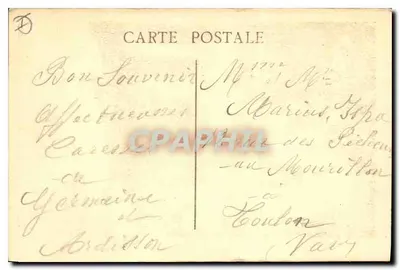 CARTE POSTALE
Bon Souvenir
Affectueuses
Caresses
de
Germaine
et
Ardisson
Mme Mr
Marius
rue des
au Mourillon
à
Toulon
Var
CPAPHIL